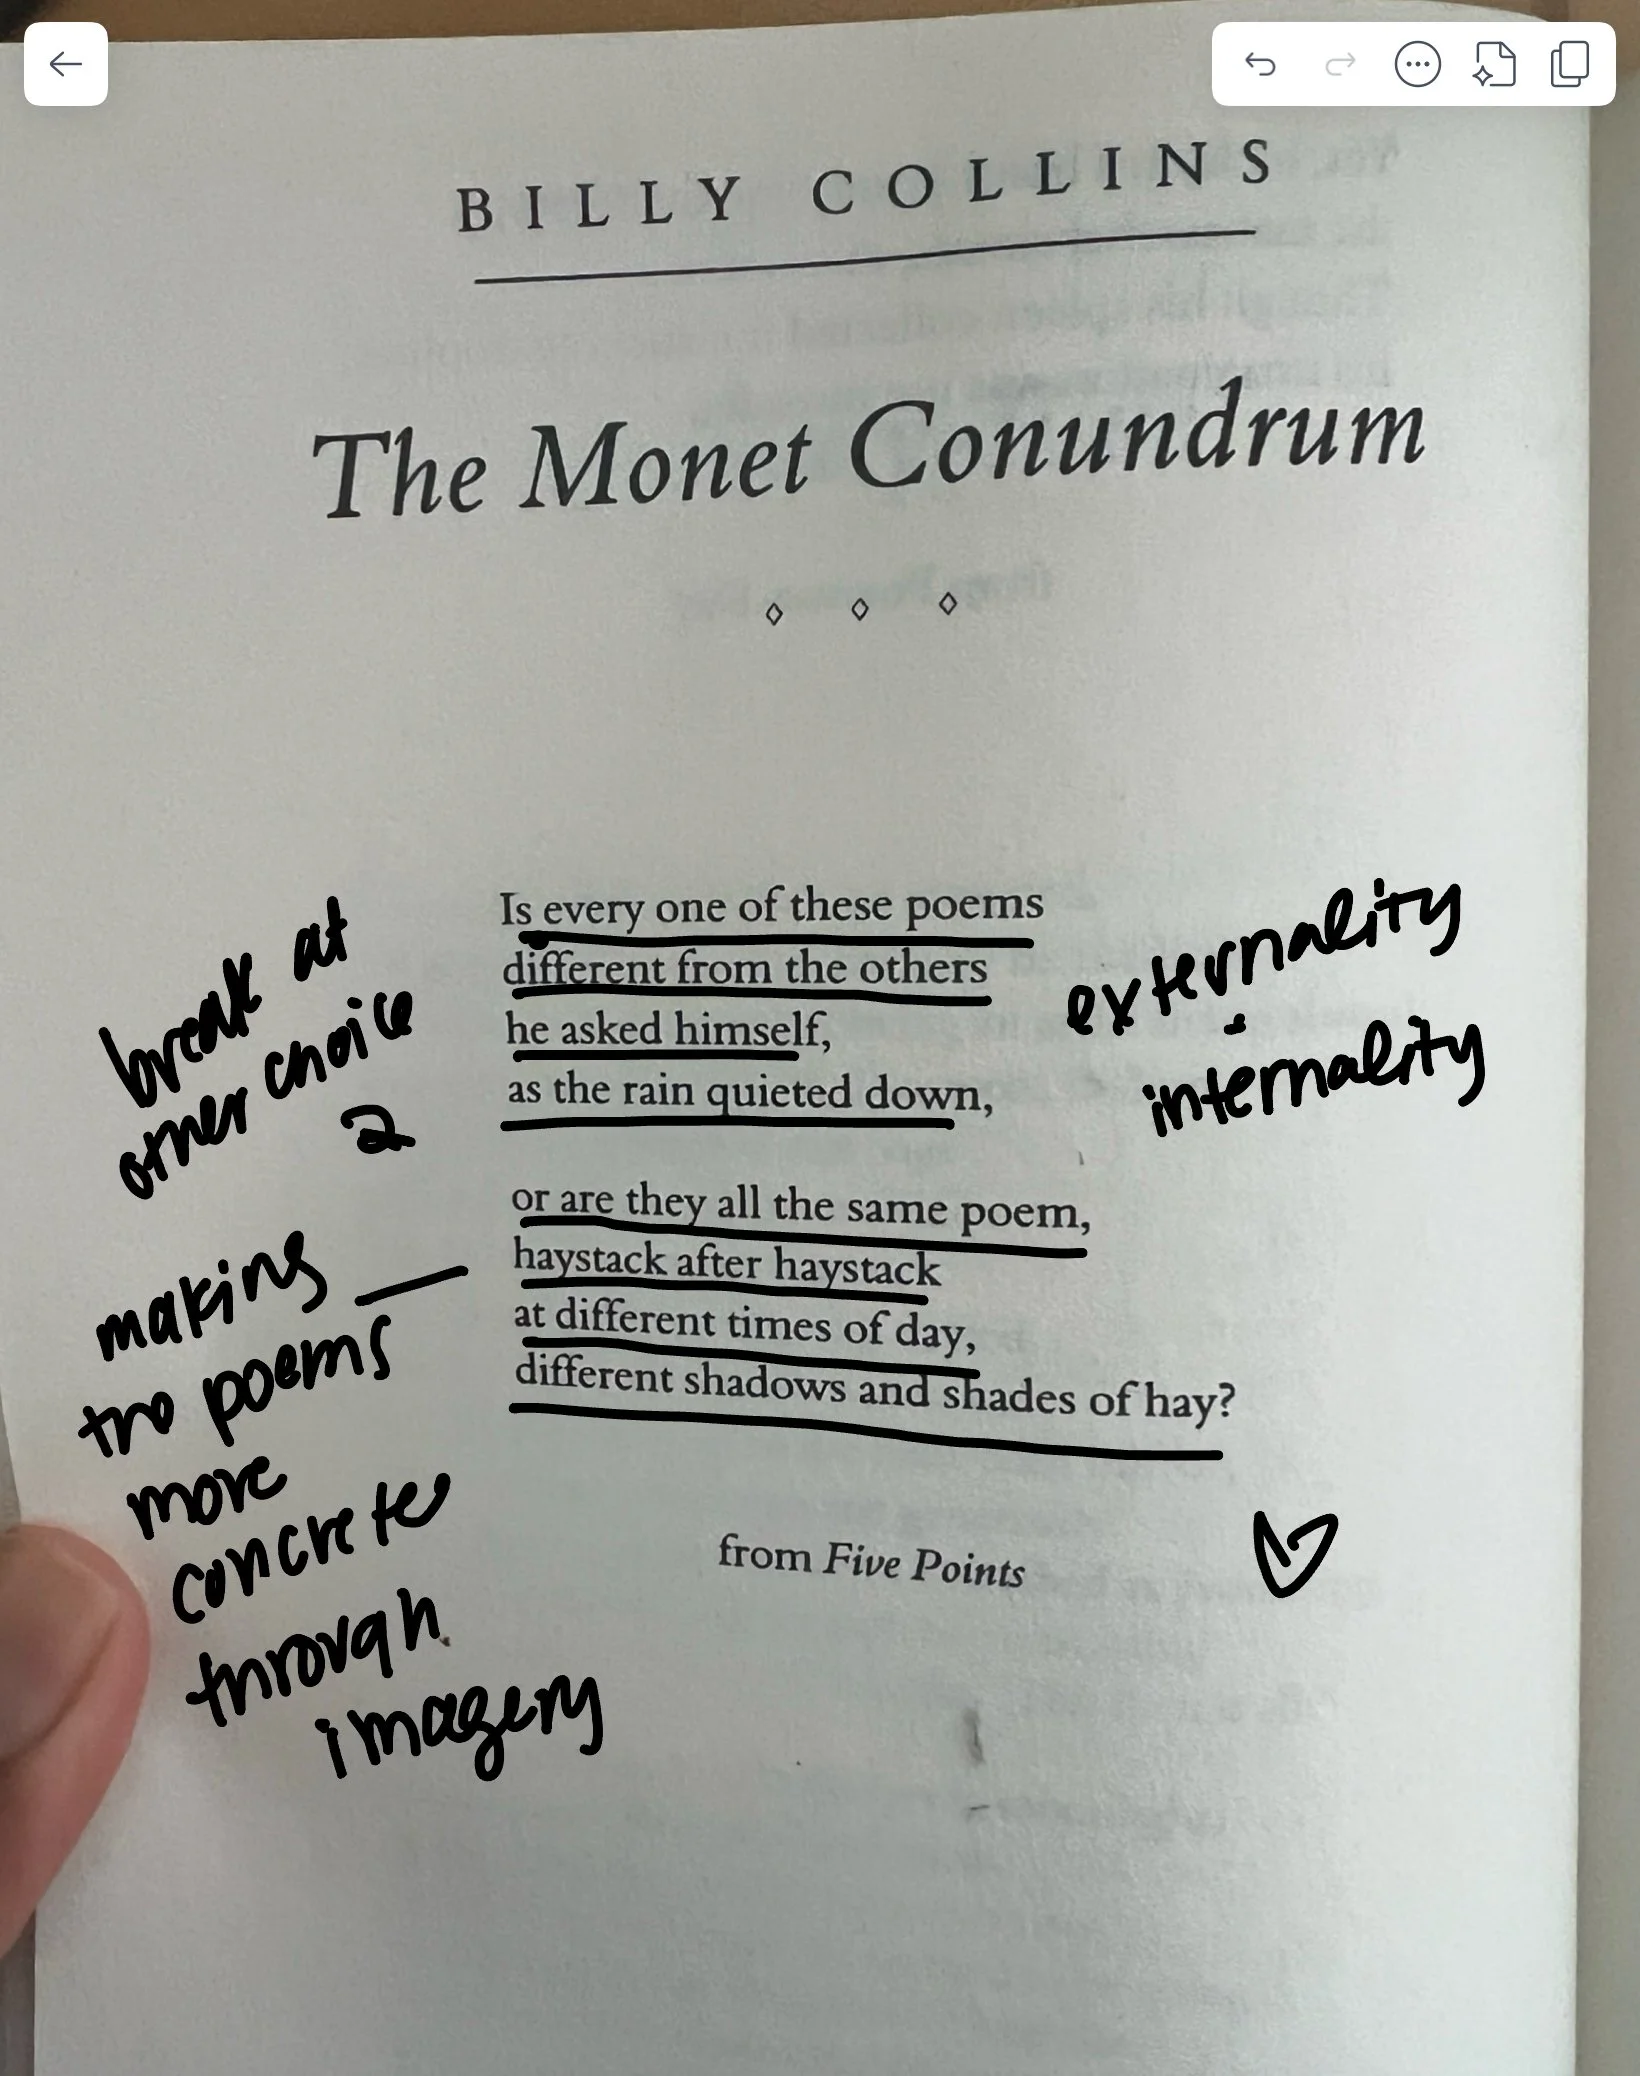 BILLY COLLINS
The Monet Conundrum
Is every one of these poems
different from the others
he asked himself,
as the rain quieted down,
or are they all the same poem,
haystack after haystack
at different times of day,
different shadows and shades of hay?
from Five Points
break at
other choice
2
making
the poems
more
concrete
through
imagery
externality
internality